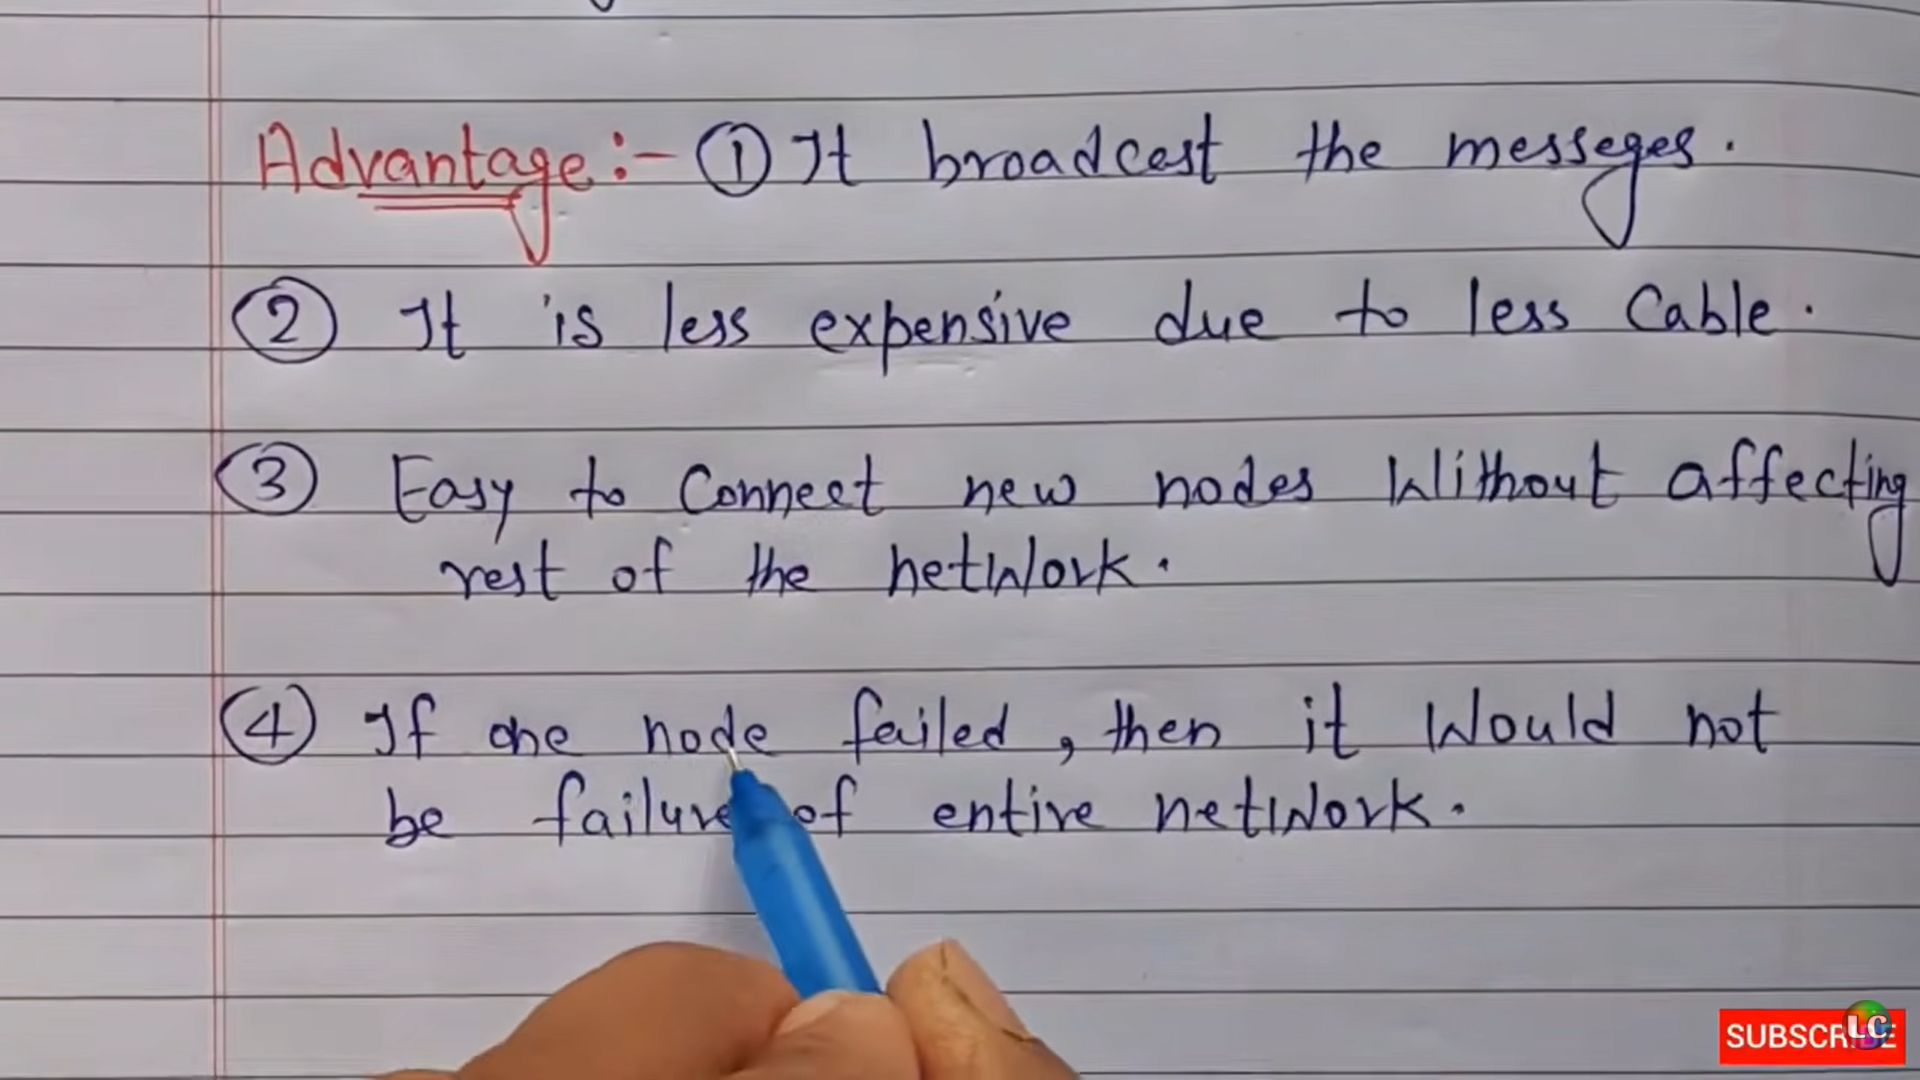 Advantage:- ① It broadcast the messeges.
② It is less expensive due to less Cable.
③ Easy to Connect new nodes Without affecting
rest of the network.
④ If one node failed, then it Would not
be failure of entire network.
SUBSCRIBE
LC